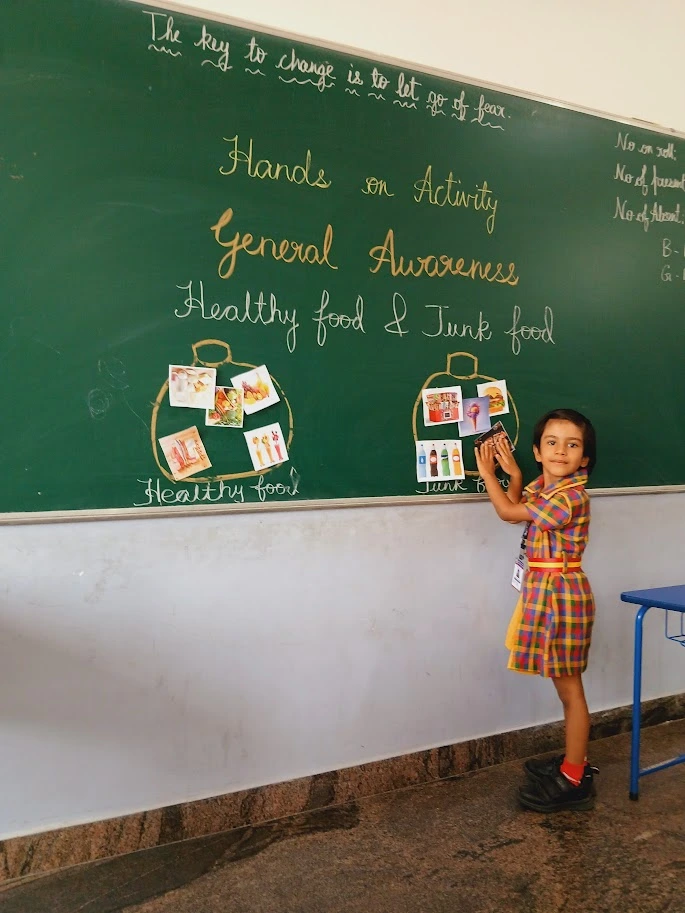 The key to change is to let go of fear.
No on roll:
No of present
No of Absent:
B-
G-
Hands on Activity
General Awareness
Healthy food & Junk food
Healthy food
Junk